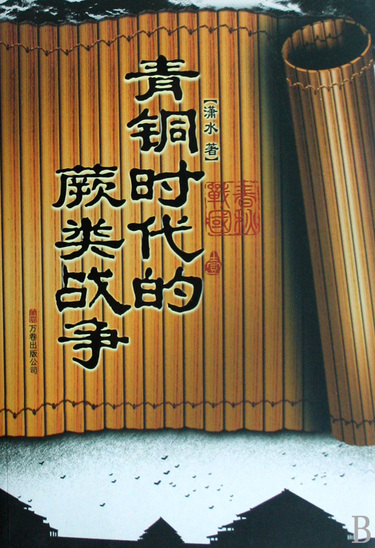 青铜时代的
蕨类战争
【潇水 著】
春秋
戰國
壹
万卷出版公司
B